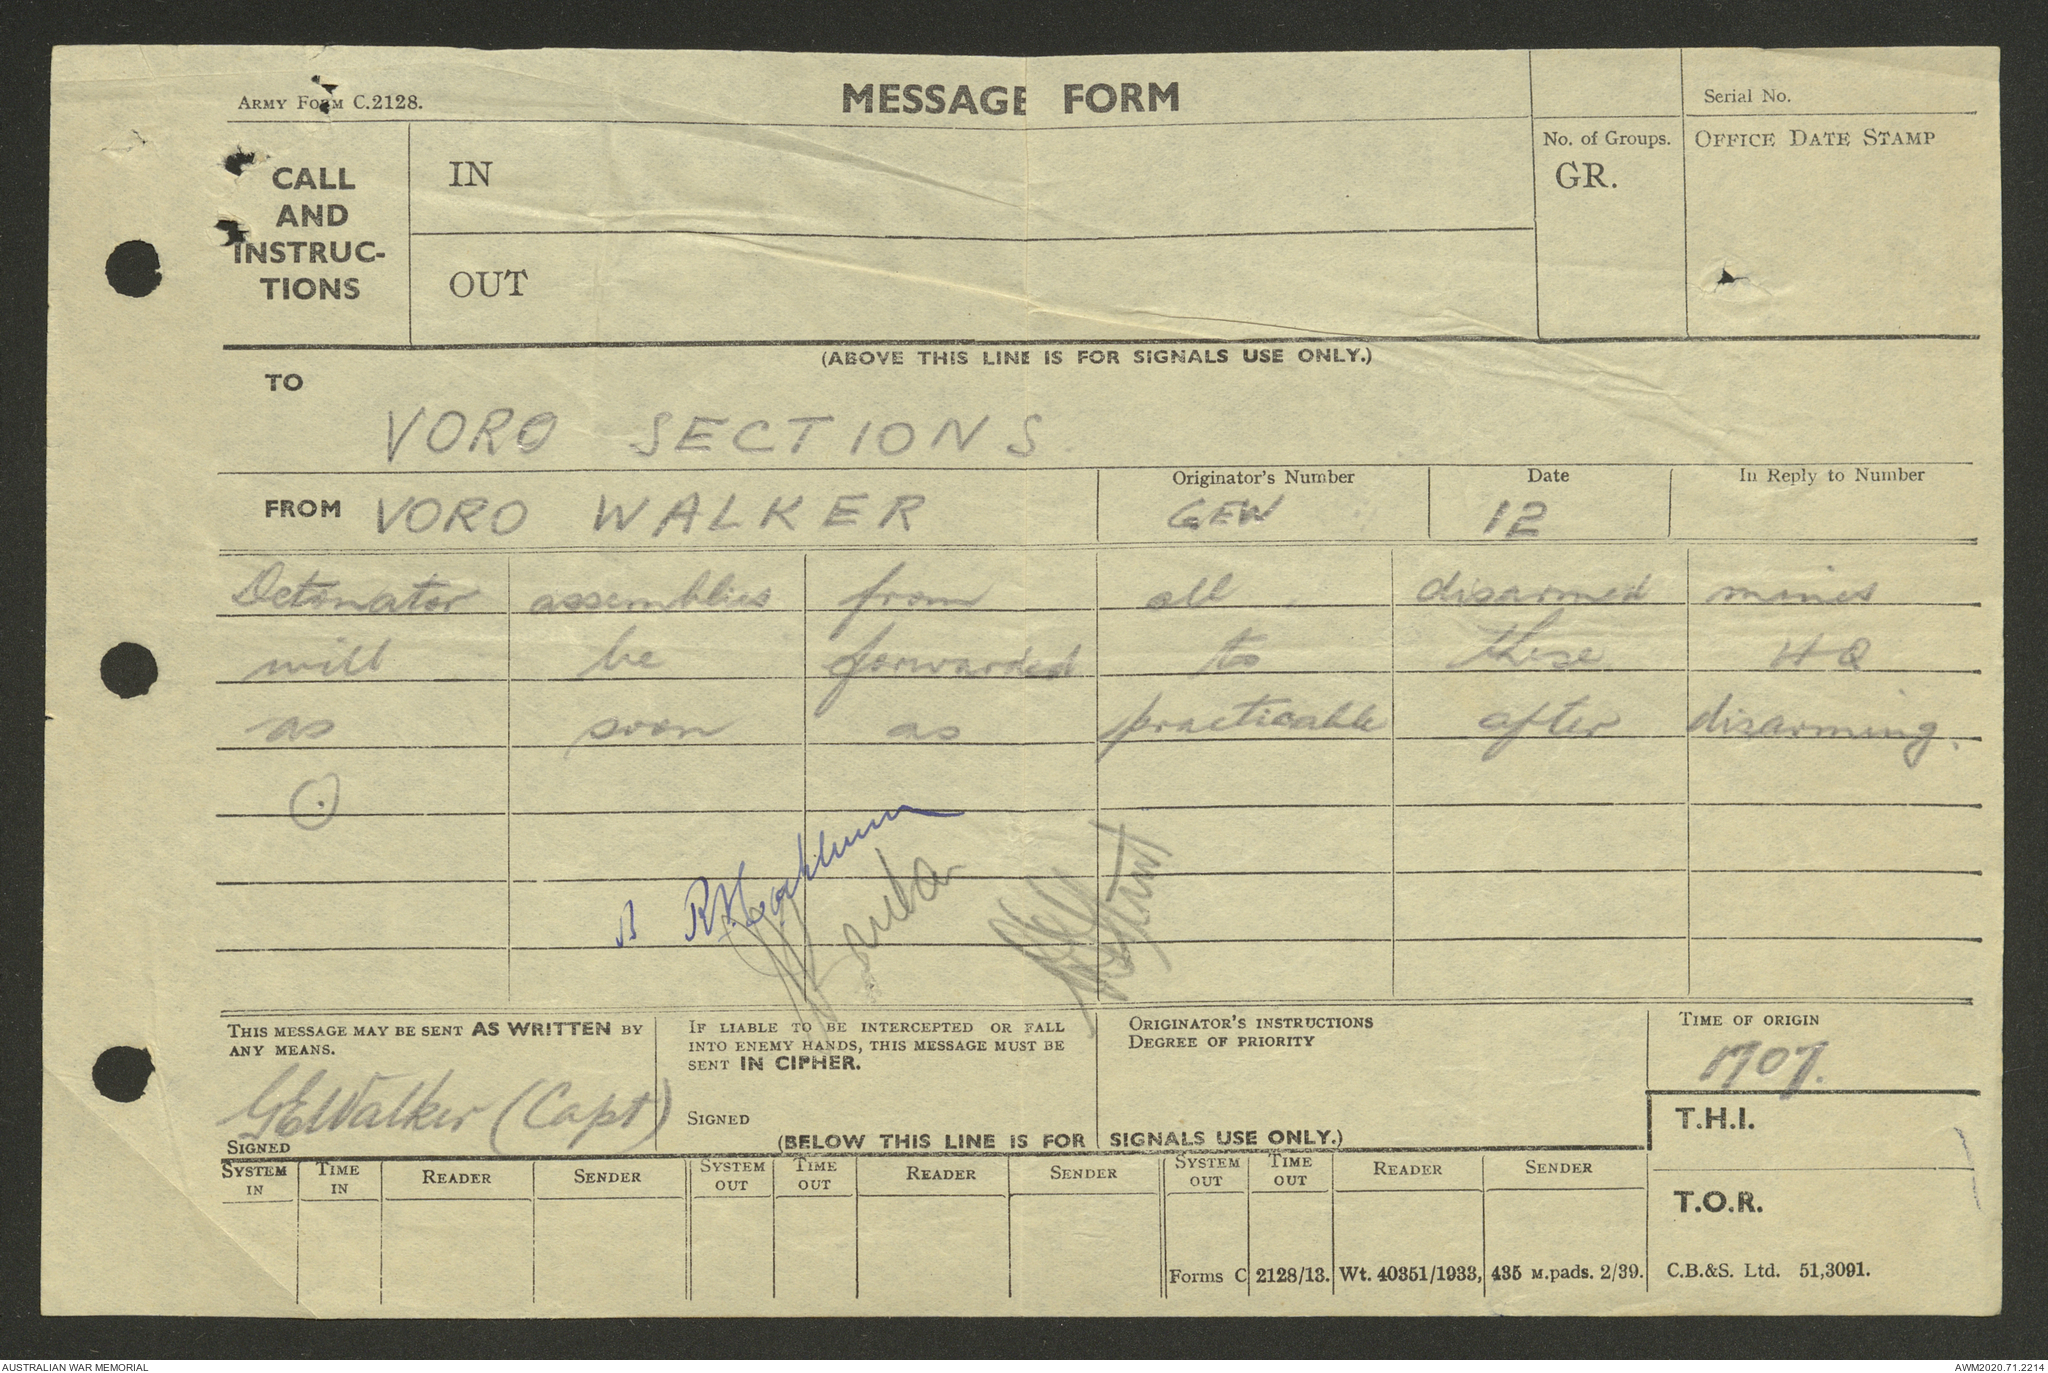 ARMY FORM C.2128.
MESSAGE FORM
Serial No.
CALL AND INSTRUC-TIONS
IN
OUT
No. of Groups.
GR.
OFFICE DATE STAMP
(ABOVE THIS LINE IS FOR SIGNALS USE ONLY.)
TO
VORO SECTIONS
FROM VORO WALKER
Originator's Number
GEW
Date
12
In Reply to Number
Detonator assemblies from all disarmed mines
will be forwarded to these HQ
as soon as practicable after disarming.
THIS MESSAGE MAY BE SENT AS WRITTEN BY
ANY MEANS.
GEWalker (Capt)
SIGNED
IF LIABLE TO BE INTERCEPTED OR FALL
INTO ENEMY HANDS, THIS MESSAGE MUST BE
SENT IN CIPHER.
SIGNED
ORIGINATOR'S INSTRUCTIONS
DEGREE OF PRIORITY
TIME OF ORIGIN
1707.
(BELOW THIS LINE IS FOR SIGNALS USE ONLY.)
T.H.I.
T.O.R.
SYSTEM IN TIME IN READER SENDER SYSTEM OUT TIME OUT READER SENDER SYSTEM OUT TIME OUT READER SENDER
Forms C 2128/13. Wt. 40351/1933, 435 M.pads. 2/39. C.B.&S. Ltd. 51,3091.
AUSTRALIAN WAR MEMORIAL
AWM2020.71.2214